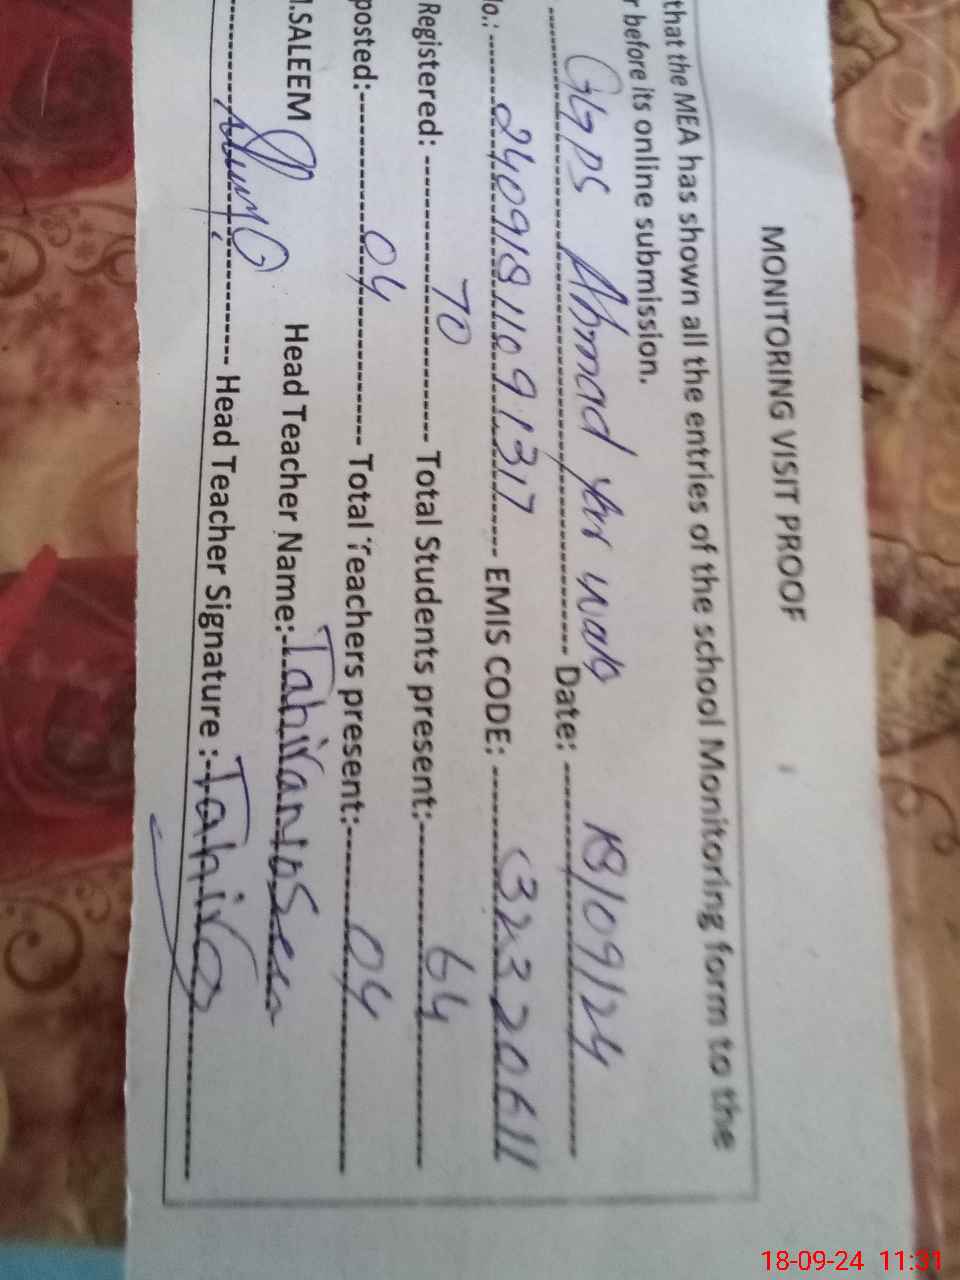 MONITORING VISIT PROOF
that the MEA has shown all the entries of the school Monitoring form to the
r before its online submission.
GGPS Ahmad Yar wala Date: 18/09/24
lo.: 24091811091317 EMIS CODE: 32320611
Registered: 70 Total Students present: 64
posted: 04 Total Teachers present: 04
M.SALEEM Head Teacher Name: Tahira
Head Teacher Signature : Tahira
18-09-24 11:31